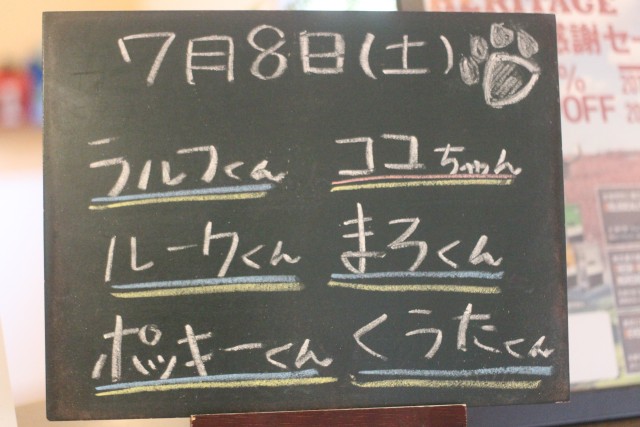 7月8日(土)
ラルフくん ココちゃん
ルークくん まろくん
ポッキーくん くうたくん
HERITAGE
感謝セー
%
OFF